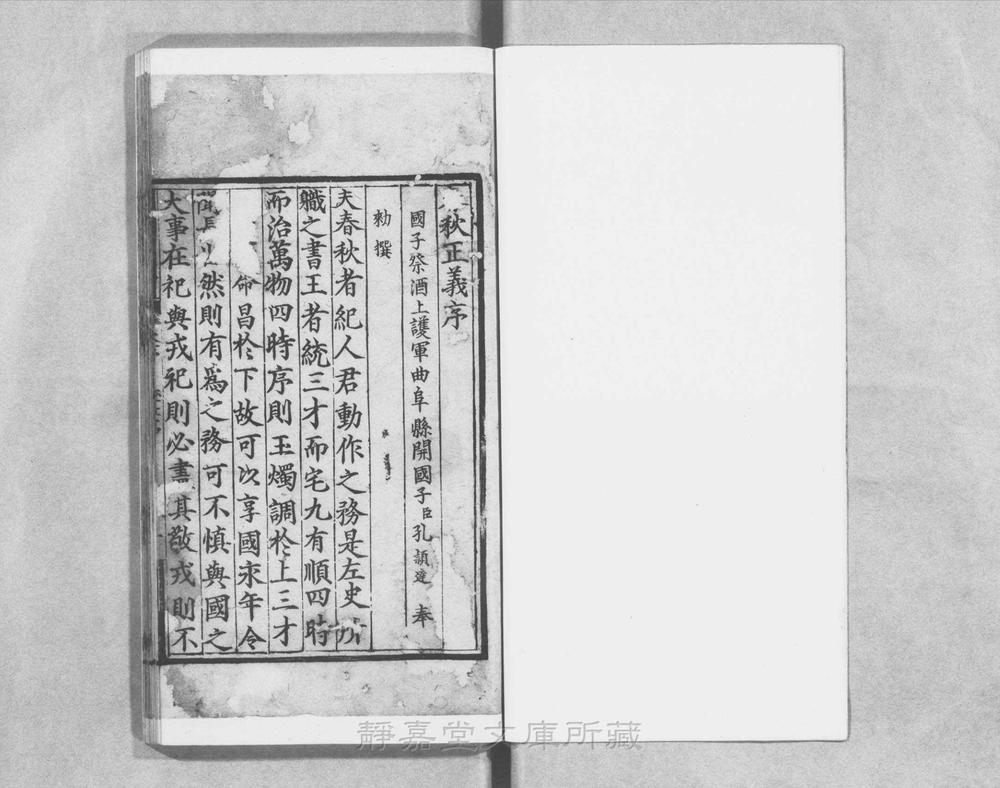 秋正義序
國子祭酒上護軍曲阜縣開國子臣孔穎達 奉
勑撰
夫春秋者紀人君動作之務是左史所
職之書王者統三才而宅九有順四時
而治萬物四時序則玉燭調於上三才
命昌於下故可以享國永年令
然則有爲之務可不慎與國之
大事在祀與戎祀則必盡其敬戎則不
靜嘉堂文庫所藏